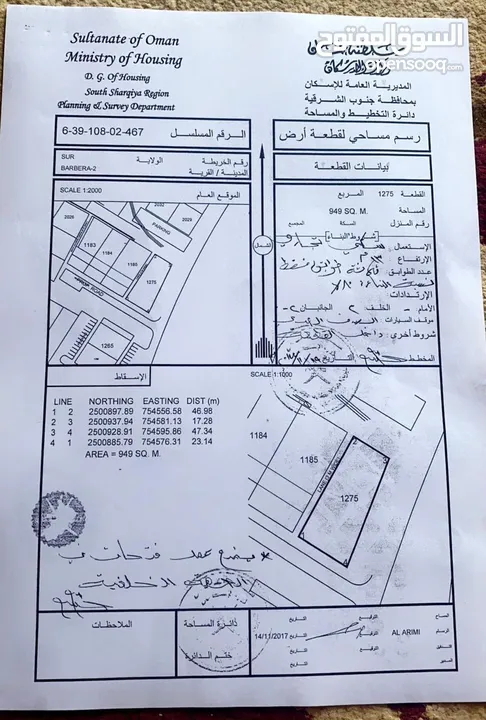 السوق المفتوح
opensooq.com
Sultanate of Oman
Ministry of Housing
D. G. Of Housing
South Sharqiya Region
Planning & Survey Department
المديرية العامة للإسكان
بمحافظة جنوب الشرقية
دائرة التخطيط والمساحة
6-39-108-02-467
الرقم المسلسل
رسم مساحي لقطعة أرض
SUR
الولاية
رقم الخريطة
BARBERA-2
المدينة / القرية
بيانات القطعة
SCALE 1:2000
الموقع العام
القطعة 1275 المربع
المساحة 949 SQ. M.
رقم المنزل السكة المجمع
شروط البناء
الإستعمال
الإرتفاع
عدد الطوابق
الإرتدادات
الأمام - الخلف ٢ الجانبان ٢
موقف السيارات
شروط أخرى
المخطط
التاريخ
2028
2029
PARKING
1183
1184
1185
1275
1265
الشمال
الإسقاط
SCALE 1:1000
LINE NORTHING EASTING DIST (m)
1 2 2500897.89 754556.58 46.98
2 3 2500937.94 754581.13 17.28
3 4 2500928.91 754595.86 47.34
4 1 2500885.79 754576.31 23.14
AREA = 949 SQ. M.
1184
1185
1275
يمنع عمل فتحات في
الواجهة الخلفية
الملاحظات
دائرة المساحة
ختم الدائرة
14/11/2017
التاريخ
التوقيع
AL ARIMI
المساح
الرسام
التدقيق
المدير